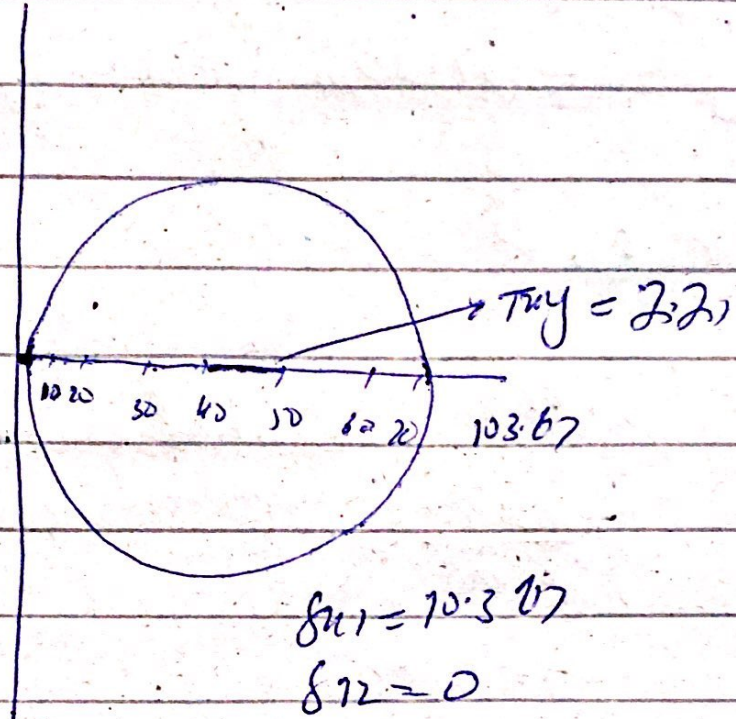 τxy = 2.2,
10 20 30 40 50 60 70 103.67
δx1 = 10.367
δ12 = 0